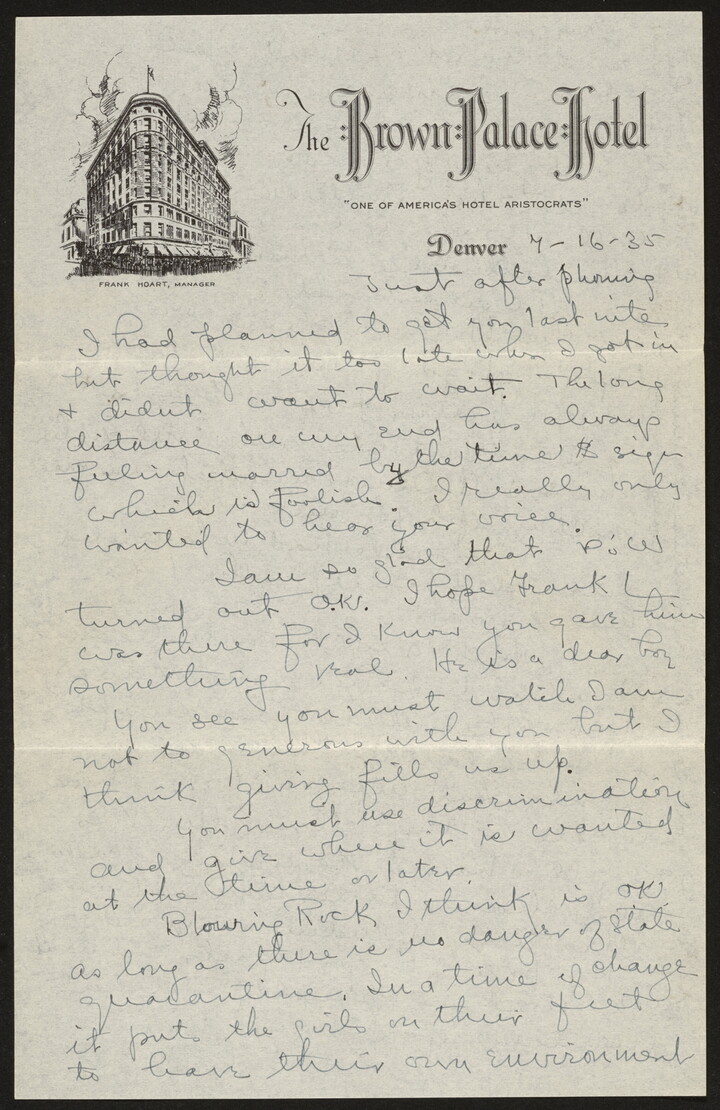 The Brown Palace Hotel
"ONE OF AMERICA'S HOTEL ARISTOCRATS"
FRANK HOART, MANAGER
Denver 7-16-35
Just after phoning
I had planned to get you last nite
but thought it too late when I got in
+ didnt want to wait. The long
distance on my end has always
feeling marred by the time $ sign
which is foolish. I really only
wanted to hear your voice.
I am so glad that
turned out O.K. I hope Frank L
was there for I know you gave him
something real. He is a dear boy
You see you must watch I am
not to generous with you but I
think giving fills us up.
You must use discrimination
and give where it is wanted
at the time or later.
Blowing Rock I think is OK
as long as there is no danger of state
quarantine. In a time of change
it puts the girls on their feet
to have their own environment